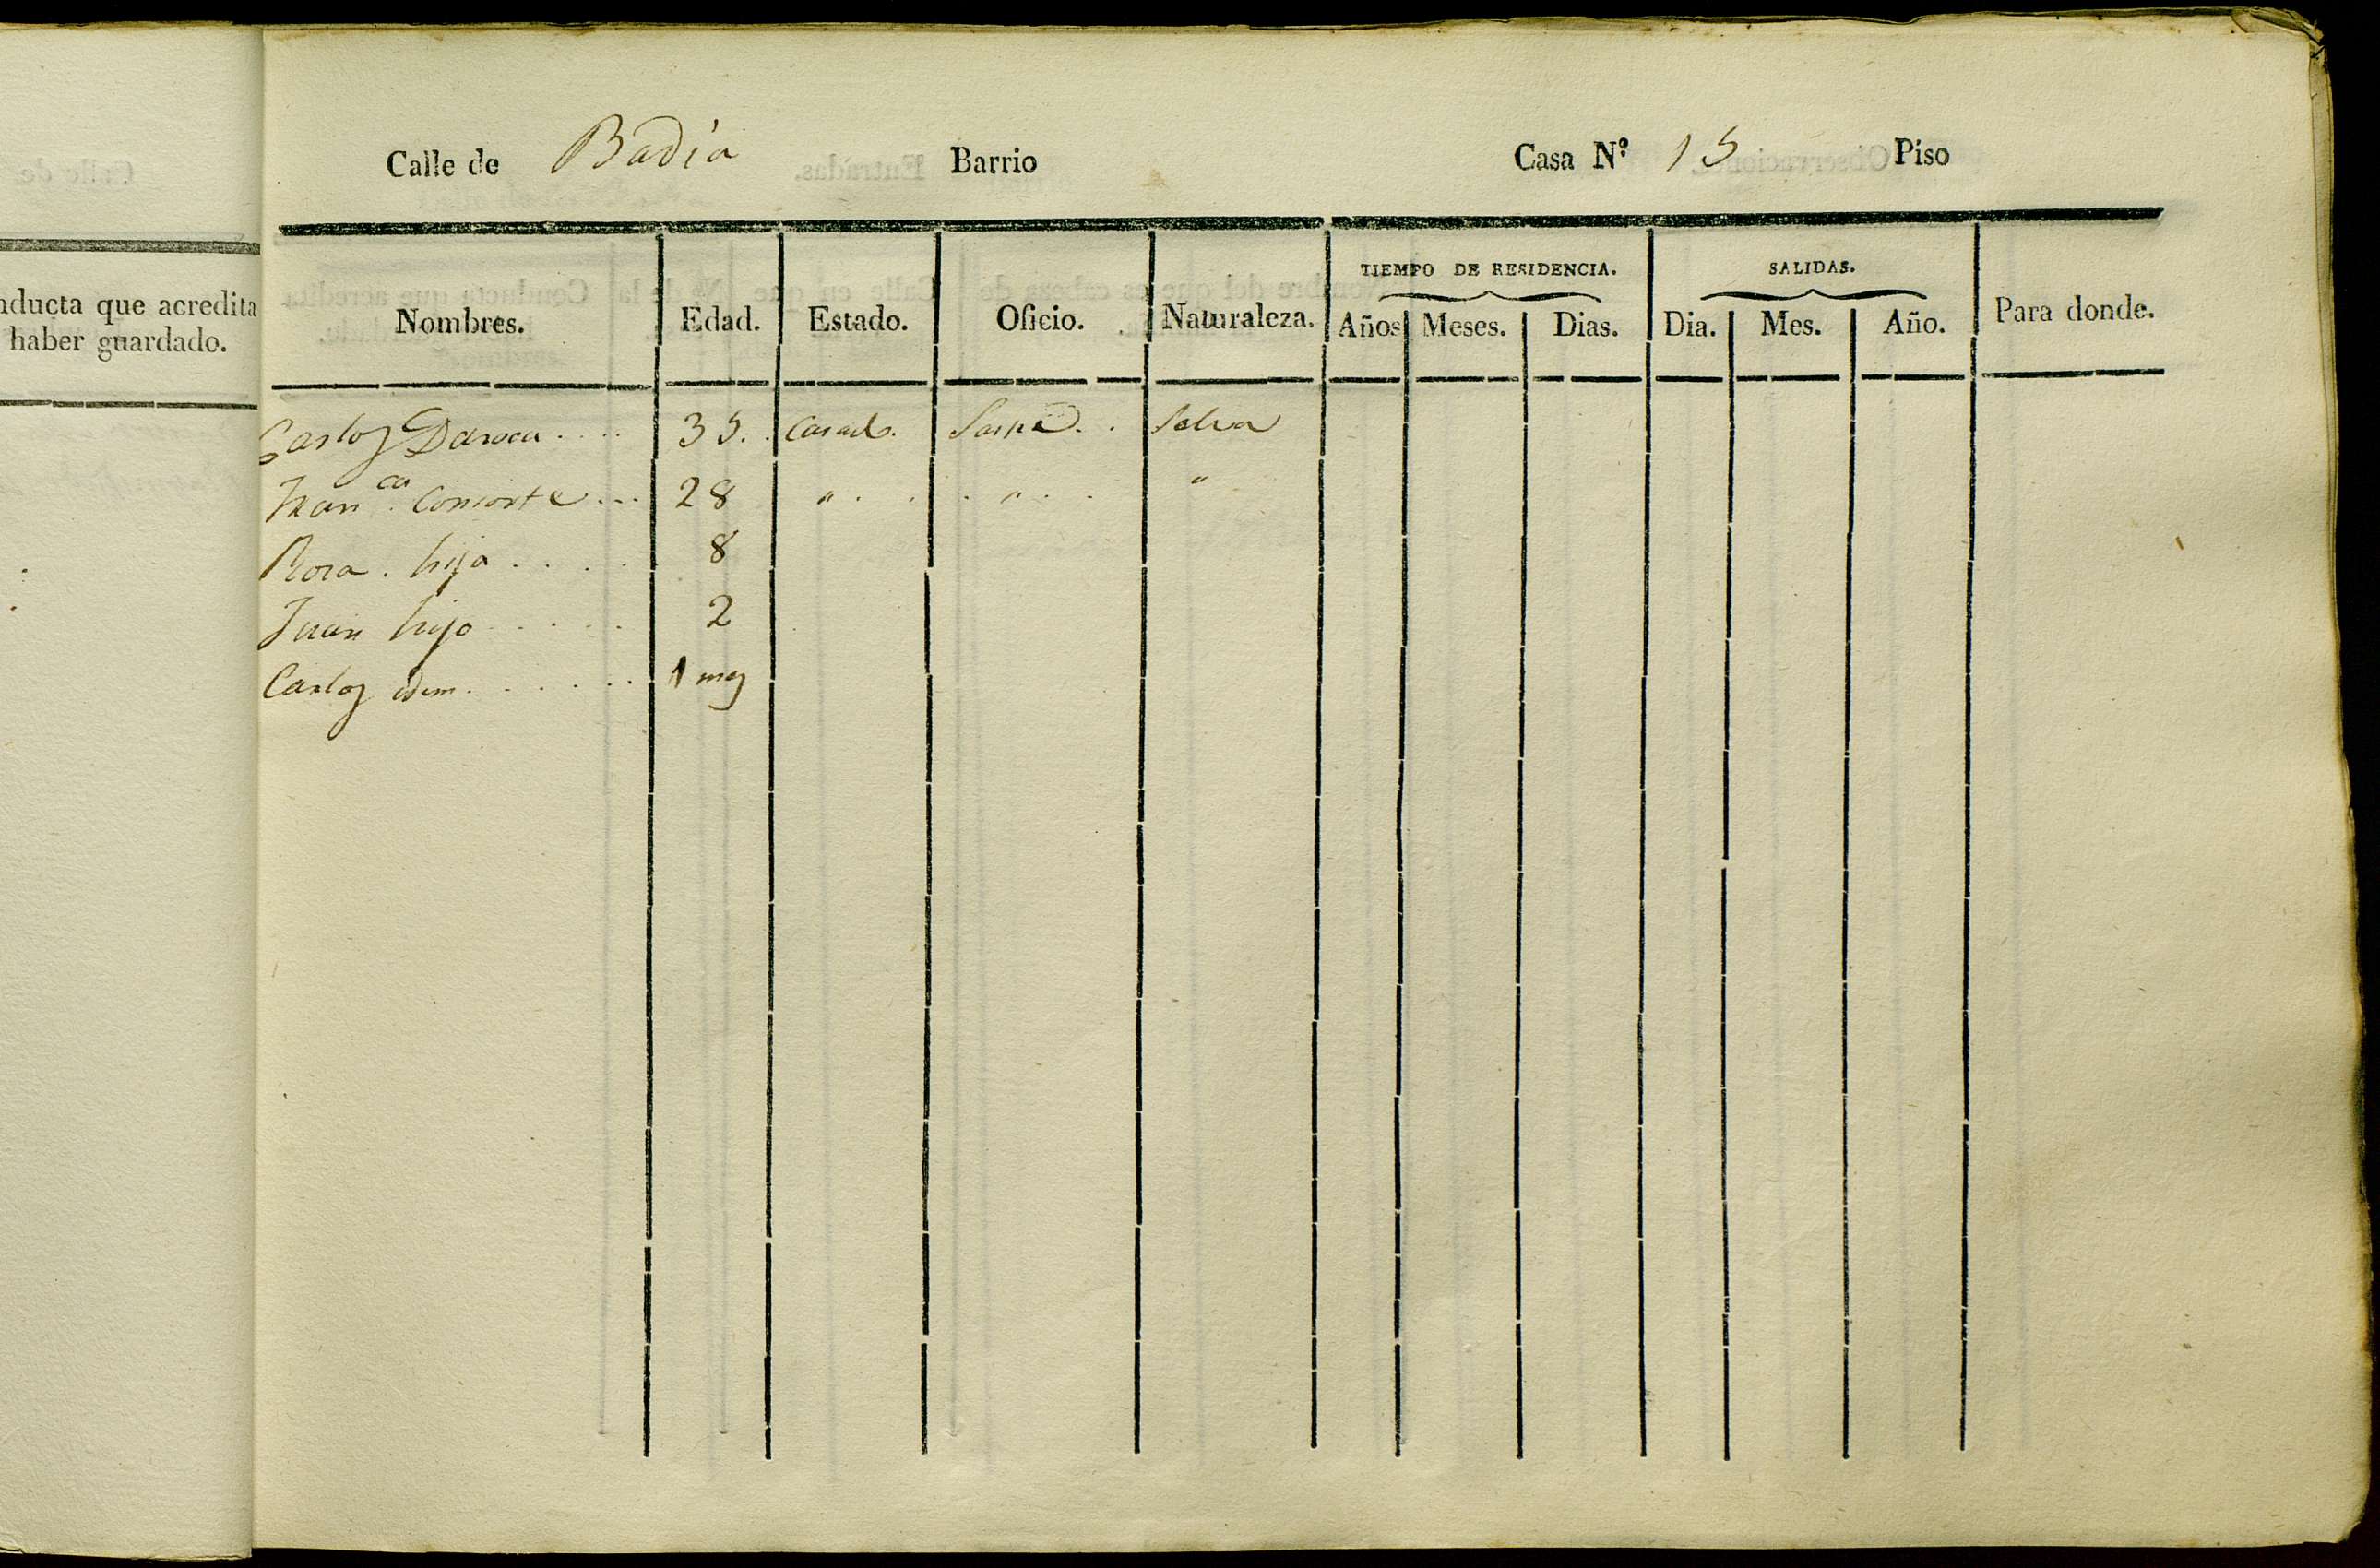 nducta que acredita
haber guardado.
Calle de Badia Barrio Casa Nº 15 Piso
TIEMPO DE RESIDENCIA. SALIDAS.
Nombres. Edad. Estado. Oficio. Naturaleza. Años Meses. Dias. Dia. Mes. Año. Para donde.
Carlos Daroca .... 35. Casado. Selva
Fran.ca Consorte ... 28 " " "
Rosa . hija .... 8
Juan hijo ..... 2
Carlos idem ...... 1 mes